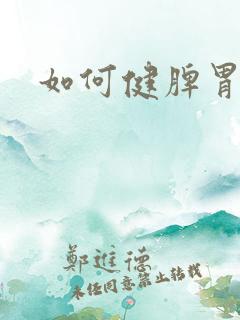 如何健脾胃
鄭進德
未经同意禁止转载